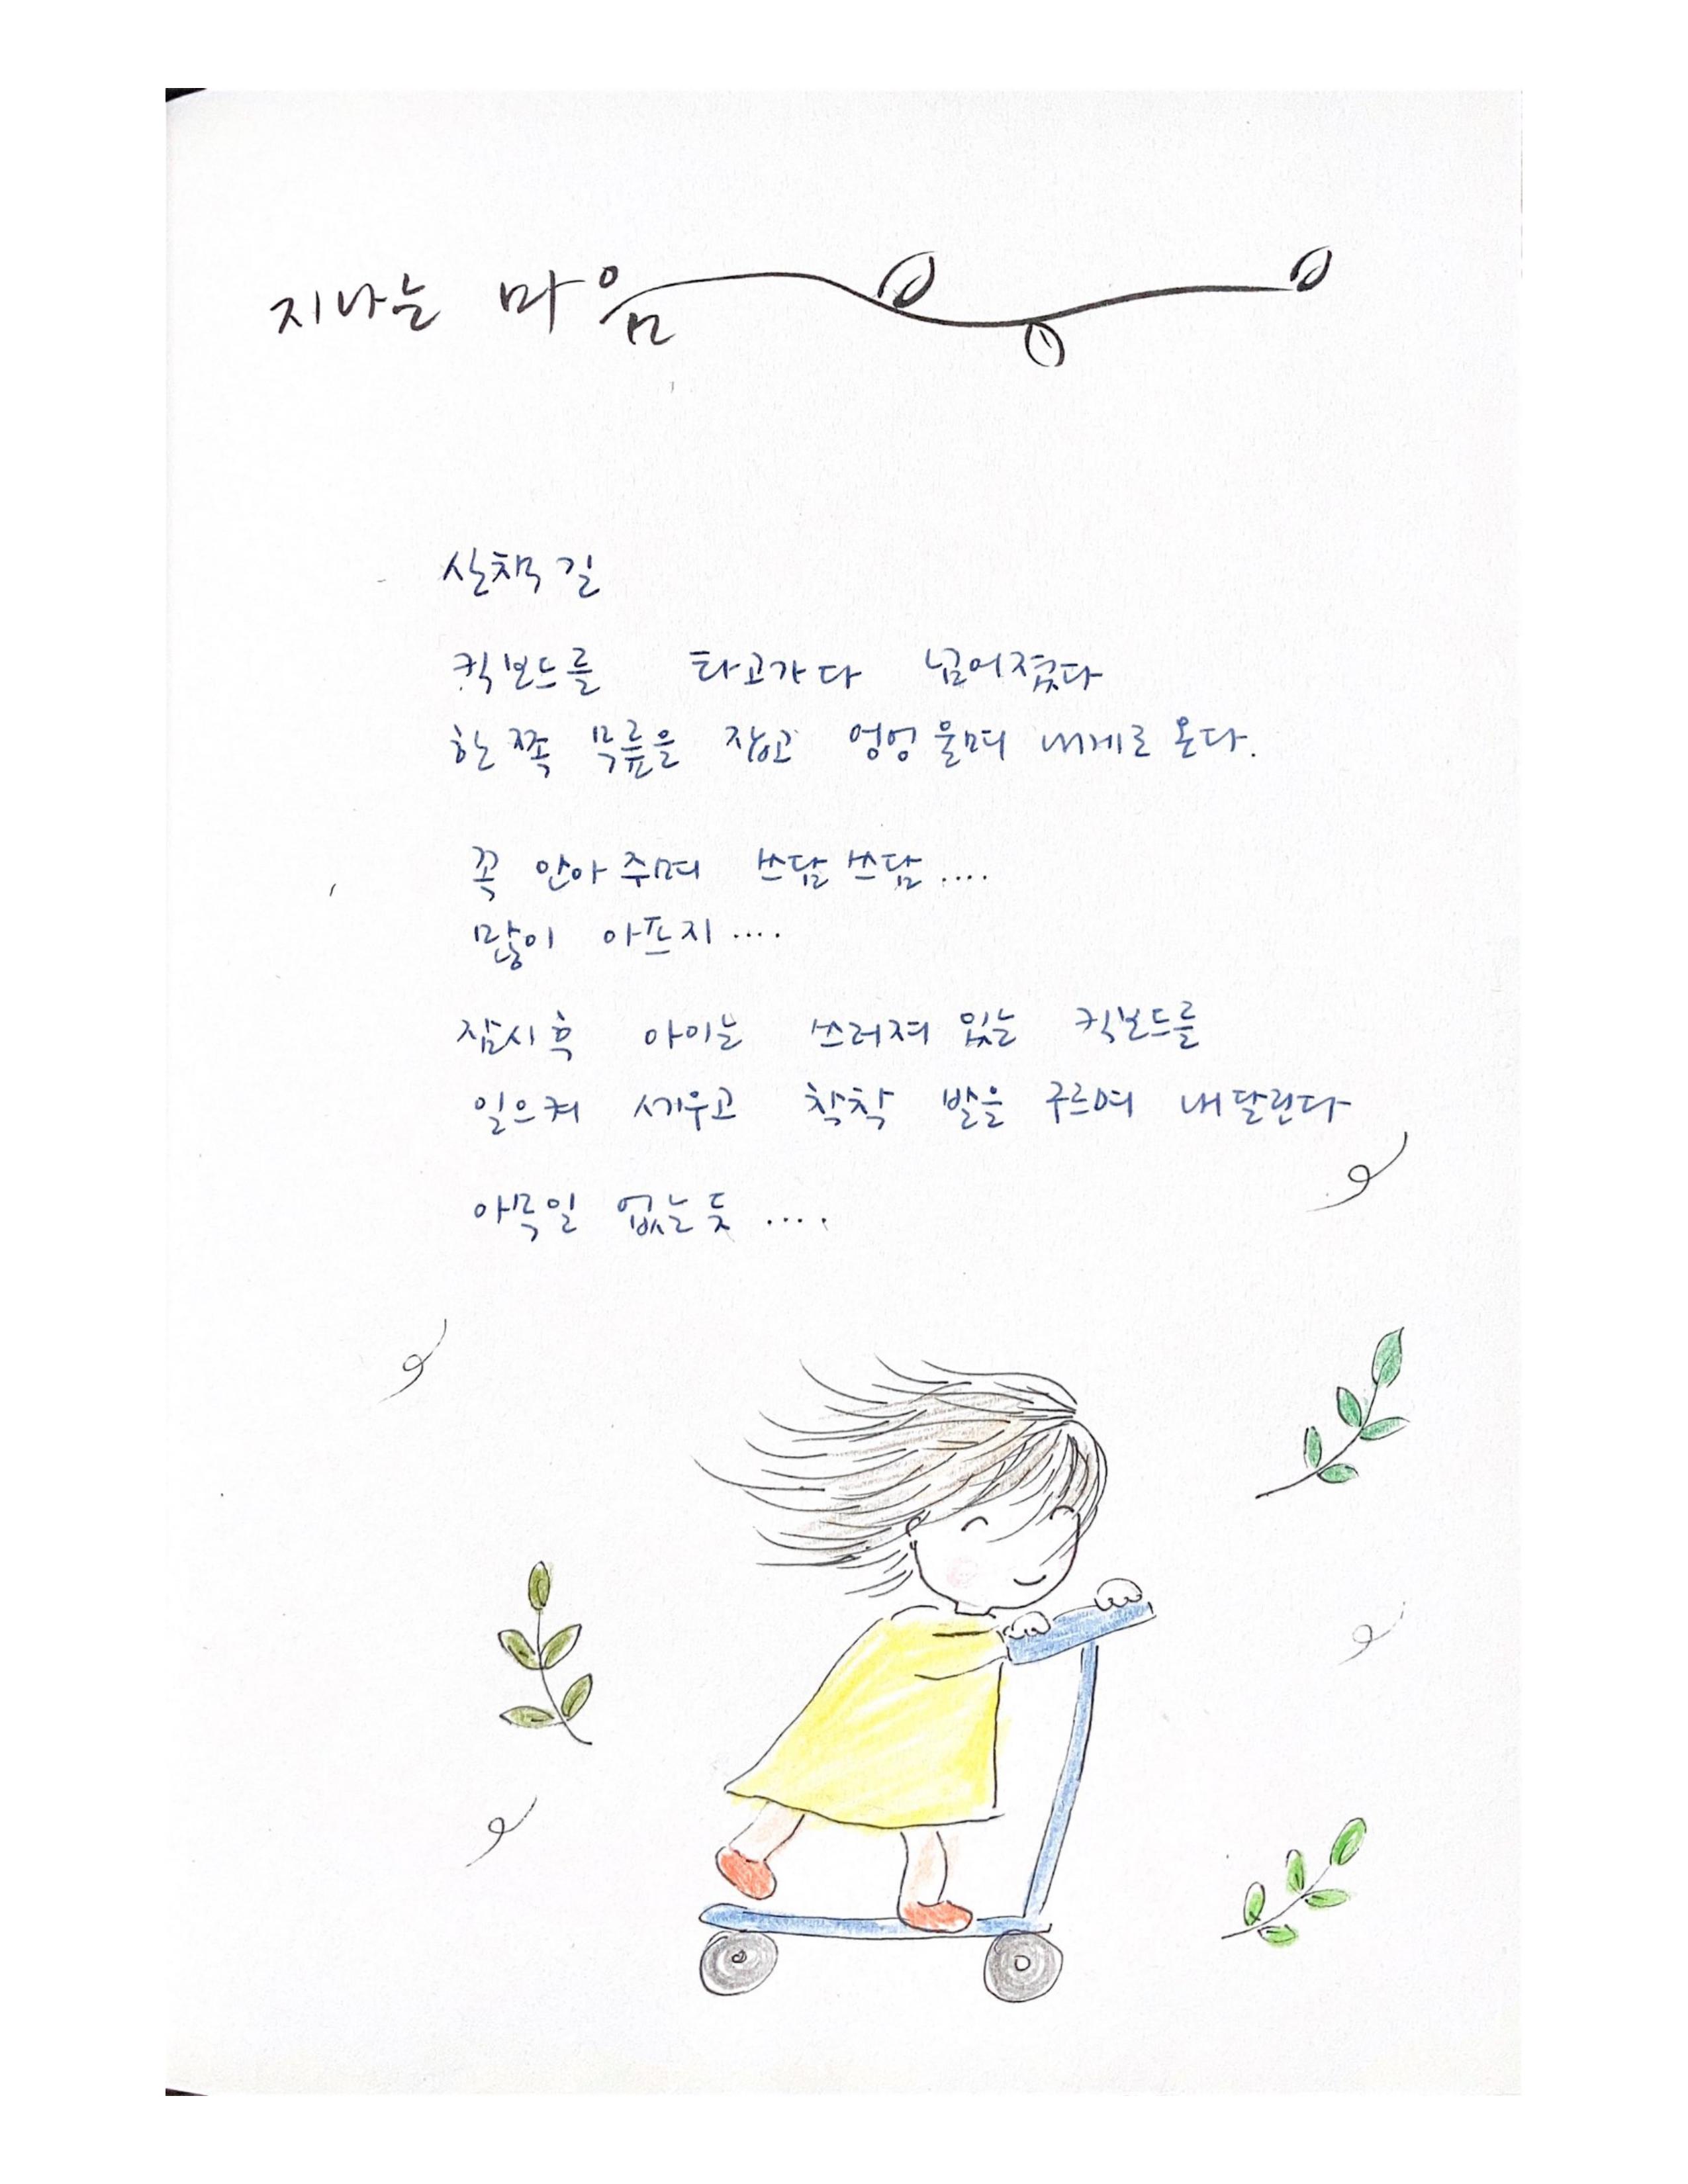 지나는 마음
산책길
킥보드를 타고가다 넘어졌다
한쪽 무릎을 잡고 엉엉 울며 내게로 온다.
꼭 안아주며 쓰담쓰담....
많이 아프지....
잠시후 아이는 쓰러져 있는 킥보드를
일으켜 세우고 착착 발을 구르며 내달린다
아무일 없는듯....